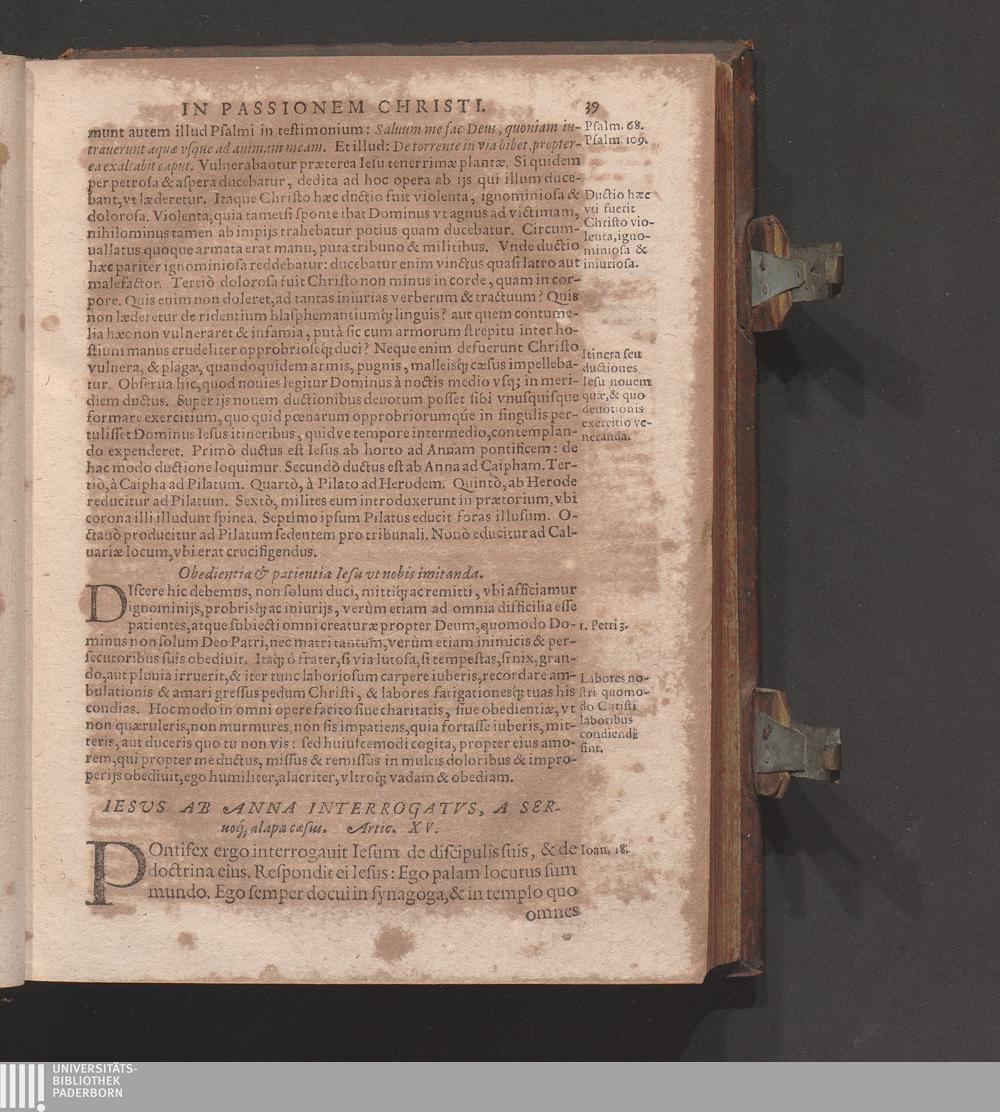 IN PASSIONEM CHRISTI. 39
munt autem illud Psalmi in testimonium: Saluum me fac Deus, quoniam in-
trauerunt aquæ vsque ad animam meam. Et illud: De torrente in via bibet, propter-
ea exaltabit caput. Vulnerabantur præterea Iesu tenerrimæ plantæ. Si quidem
per petrosa & aspera ducebatur, dedita ad hoc opera ab ijs qui illum duce-
bant, vt læderetur. Itaque Christo hæc ductio fuit violenta, ignominiosa &
dolorosa. Violenta, quia tametsi sponte ibat Dominus vt agnus ad victimam,
nihilominus tamen ab impijs trahebatur potius quam ducebatur. Circum-
uallatus quoque armata erat manu, puta tribuno & militibus. Vnde ductio
hæc pariter ignominiosa reddebatur: ducebatur enim vinctus quasi latro aut
malefactor. Tertiò dolorosa fuit Christo non minus in corde, quam in cor-
pore. Quis enim non doleret, ad tantas iniurias verberum & tractuum? Quis
non læderetur de ridentium blasphemantiumq; linguis? aut quem contume-
lia hæc non vulneraret & infamia, putà sic cum armorum strepitu inter ho-
stium manus crudeliter opprobrioseq; duci? Neque enim defuerunt Christo
vulnera, & plagæ, quandoquidem armis, pugnis, malleisq; cæsus impelleba-
tur. Obserua hic, quod nouies legitur Dominus à noctis medio vsq; in meri-
diem ductus. Super ijs nouem ductionibus deuotum posset sibi vnusquisque
formare exercitium, quo quid pœnarum opprobriorumqúe in singulis per-
tulisset Dominus Iesus itineribus, quidve tempore intermedio, contemplan-
do expenderet. Primò ductus est Iesus ab horto ad Annam pontificem: de
hac modo ductione loquimur. Secundò ductus est ab Anna ad Caipham. Ter-
tiò, à Caipha ad Pilatum. Quartò, à Pilato ad Herodem. Quintò, ab Herode
reducitur ad Pilatum. Sextò, milites eum introduxerunt in prætorium, vbi
corona illi illudunt spinea. Septimo ipsum Pilatus educit foras illusum. O-
ctauò producitur ad Pilatum sedentem pro tribunali. Nonò educitur ad Cal-
uariæ locum, vbi erat crucifigendus.
Psalm. 68.
Psalm. 109.
Ductio hæc
vti fuerit
Christo vio-
lenta, igno-
miniosa &
iniuriosa.
Itinera seu
ductiones
Iesu nouem
quæ, & quo
deuotionis
exercitio ve-
neranda.
Obedientia & patientia Iesu vt nobis imitanda.
DIscere hic debemus, non solum duci, mittiq; ac remitti, vbi afficiamur
ignominijs, probrisq; ac iniurijs, verùm etiam ad omnia difficilia esse
patientes, atque subiecti omni creaturæ propter Deum, quomodo Do-
minus non solum Deo Patri, nec matri tantum, verùm etiam inimicis & per-
secutoribus suis obediuit. Itaq; ô frater, si via lutosa, si tempestas, si nix, gran-
do, aut pluuia irruerit, & iter tunc laboriosum carpere iuberis, recordare am-
bulationis & amari gressus pedum Christi, & labores fatigationesq; tuas his
condias. Hoc modo in omni opere facito siue charitatis, siue obedientiæ, vt
non quæruleris, non murmures, non sis impatiens, quia fortasse iuberis, mit-
teris, aut duceris quo tu non vis: sed huiuscemodi cogita, propter eius amo-
rem, qui propter me ductus, missus & remissus in multis doloribus & impro-
perijs obediuit, ego humiliter, alacriter, vltroq; vadam & obediam.
1. Petri 3.
Labores no-
stri quomo-
do Christi
laboribus
condiendi
sint.
IESVS AB ANNA INTERROGATVS, A SER-
uoq́; alapa cæsus. Artic. XV.
POntifex ergo interrogauit Iesum de discipulis suis, & de
doctrina eius. Respondit ei Iesus: Ego palam locutus sum
mundo. Ego semper docui in synagoga, & in templo quo
omnes
Ioan. 18.
UNIVERSITÄTS-
BIBLIOTHEK
PADERBORN